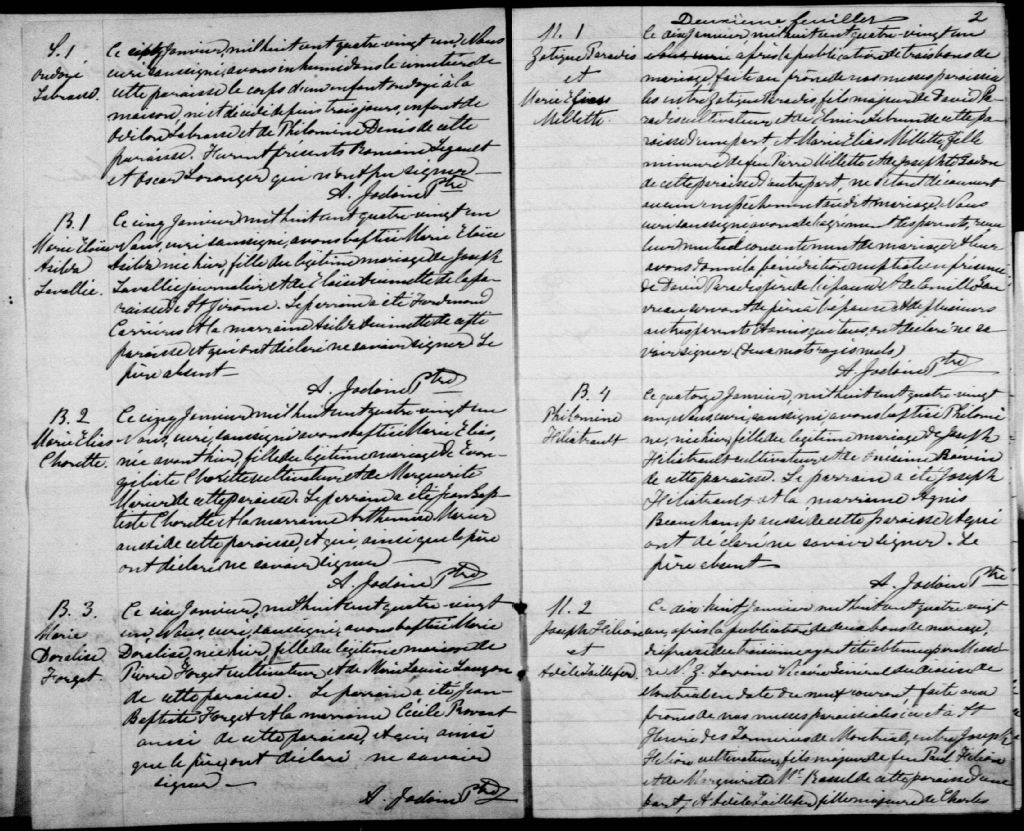 S. 1
ondoyé
Labrasse.
Ce cinq Janvier, mil huit cent quatre vingt un, Nous
curé soussigné, avons inhumé dans le cimetière de
cette paroisse le corps d'un enfant ondoyé à la
maison, né et décédé depuis trois jours, enfant de
Odilon Labrasse et de Philomène Denis de cette
paroisse. Furent présents Romain Legault
et Oscar Loranger qui n'ont pu signer.
A. Jodoin Ptre
B. 1
Marie Eloïse
Lavallée.
Ce cinq Janvier mil huit cent quatre vingt un
Nous, curé soussigné, avons baptisé Marie Eloïse
née hier, fille du légitime mariage de Joseph
Lavallée journalier et de Eloïse Ouimette de la pa-
roisse de St Jérôme. Le parrain a été
et la marraine Ouimette de cette
paroisse et qui ont déclaré ne savoir signer Le
père absent
A. Jodoin Ptre
B. 2
Marie Elias
Chorette.
Ce cinq Janvier mil huit cent quatre vingt un
Nous, curé, soussigné avons baptisé Marie Elias,
née avant hier, fille du légitime mariage de Evan-
géliste Chorette cultivateur et de Marguerite
de cette paroisse. Le parrain a été Jean Bap-
tiste Chorette et la marraine
aussi de cette paroisse, et qui, ainsi que le père
ont déclaré ne savoir signer
A. Jodoin Ptre
B. 3.
Marie
Doralise
Forget.
Ce six Janvier, mil huit cent quatre-vingt
un, Nous, curé, soussigné, avons baptisé Marie
Doralise, née hier, fille du légitime mariage de
Pierre Forget cultivateur, et de Marie Louise Lauzon
de cette paroisse. Le parrain a été Jean-
Baptiste Forget et la marraine Cécile Provost
aussi de cette paroisse, et qui, ainsi
que le père, ont déclaré ne savoir
signer
A. Jodoin Ptre
Deuxième feuillet 2
M. 1
Zotique Paradis
et
Marie Elias
Millette.
Ce dix Janvier mil huit cent quatre-vingt un
après la publication de trois bans de
mariage faite au prône de nos messes paroissia-
les entre Zotique Paradis fils majeur de David Pa-
radis cultivateur, et de Lebrun de cette pa-
roisse d'une part, et Marie Elias Millette, fille
mineure de feu Pierre Millette et de Josephte
de cette paroisse d'autre part, ne s'étant découvert
aucun empêchement au dit mariage, Nous
curé soussigné avons de l'agrément des parents, reçu
leur mutuel consentement de mariage et leur
avons donné la bénédiction nuptiale en présence
de David Paradis père de l'époux et de Camille
servant de père à l'épouse et de plusieurs
autres parents et amis qui tous, ont déclaré ne sa-
voir signer. (deux mots rayés nuls)
A. Jodoin Ptre
B. 4
Philomène
Filiatrault
Ce quatorze Janvier, mil huit cent quatre vingt
un, Nous, curé, soussigné, avons baptisé Philomè-
ne, née hier, fille du légitime mariage de Joseph
Filiatrault cultivateur, et de Onésime
de cette paroisse. Le parrain a été Joseph
Filiatrault et la marraine Agnès
Beauchamp aussi de cette paroisse et qui
ont déclaré ne savoir signer. Le
père absent
A. Jodoin Ptre
M. 2
Joseph Hélion
et
Adèle Taillefer.
Ce dix huit Janvier mil huit cent quatre vingt
un, après la publication de deux bans de mariage,
dispense du troisième ayant été obtenue par Messi-
re N. Z. Lorrain Vicaire Général du diocèse de
Montréal en date du neuf courant, faite aux
prônes de nos messes paroissiales ici et à St
Henri des Tanneries de Montréal, entre Joseph
Hélion cultivateur, fils majeur de feu Paul Hélion
et de Marguerite de cette paroisse d'une
part, et Adèle Taillefer, fille majeure de Charles